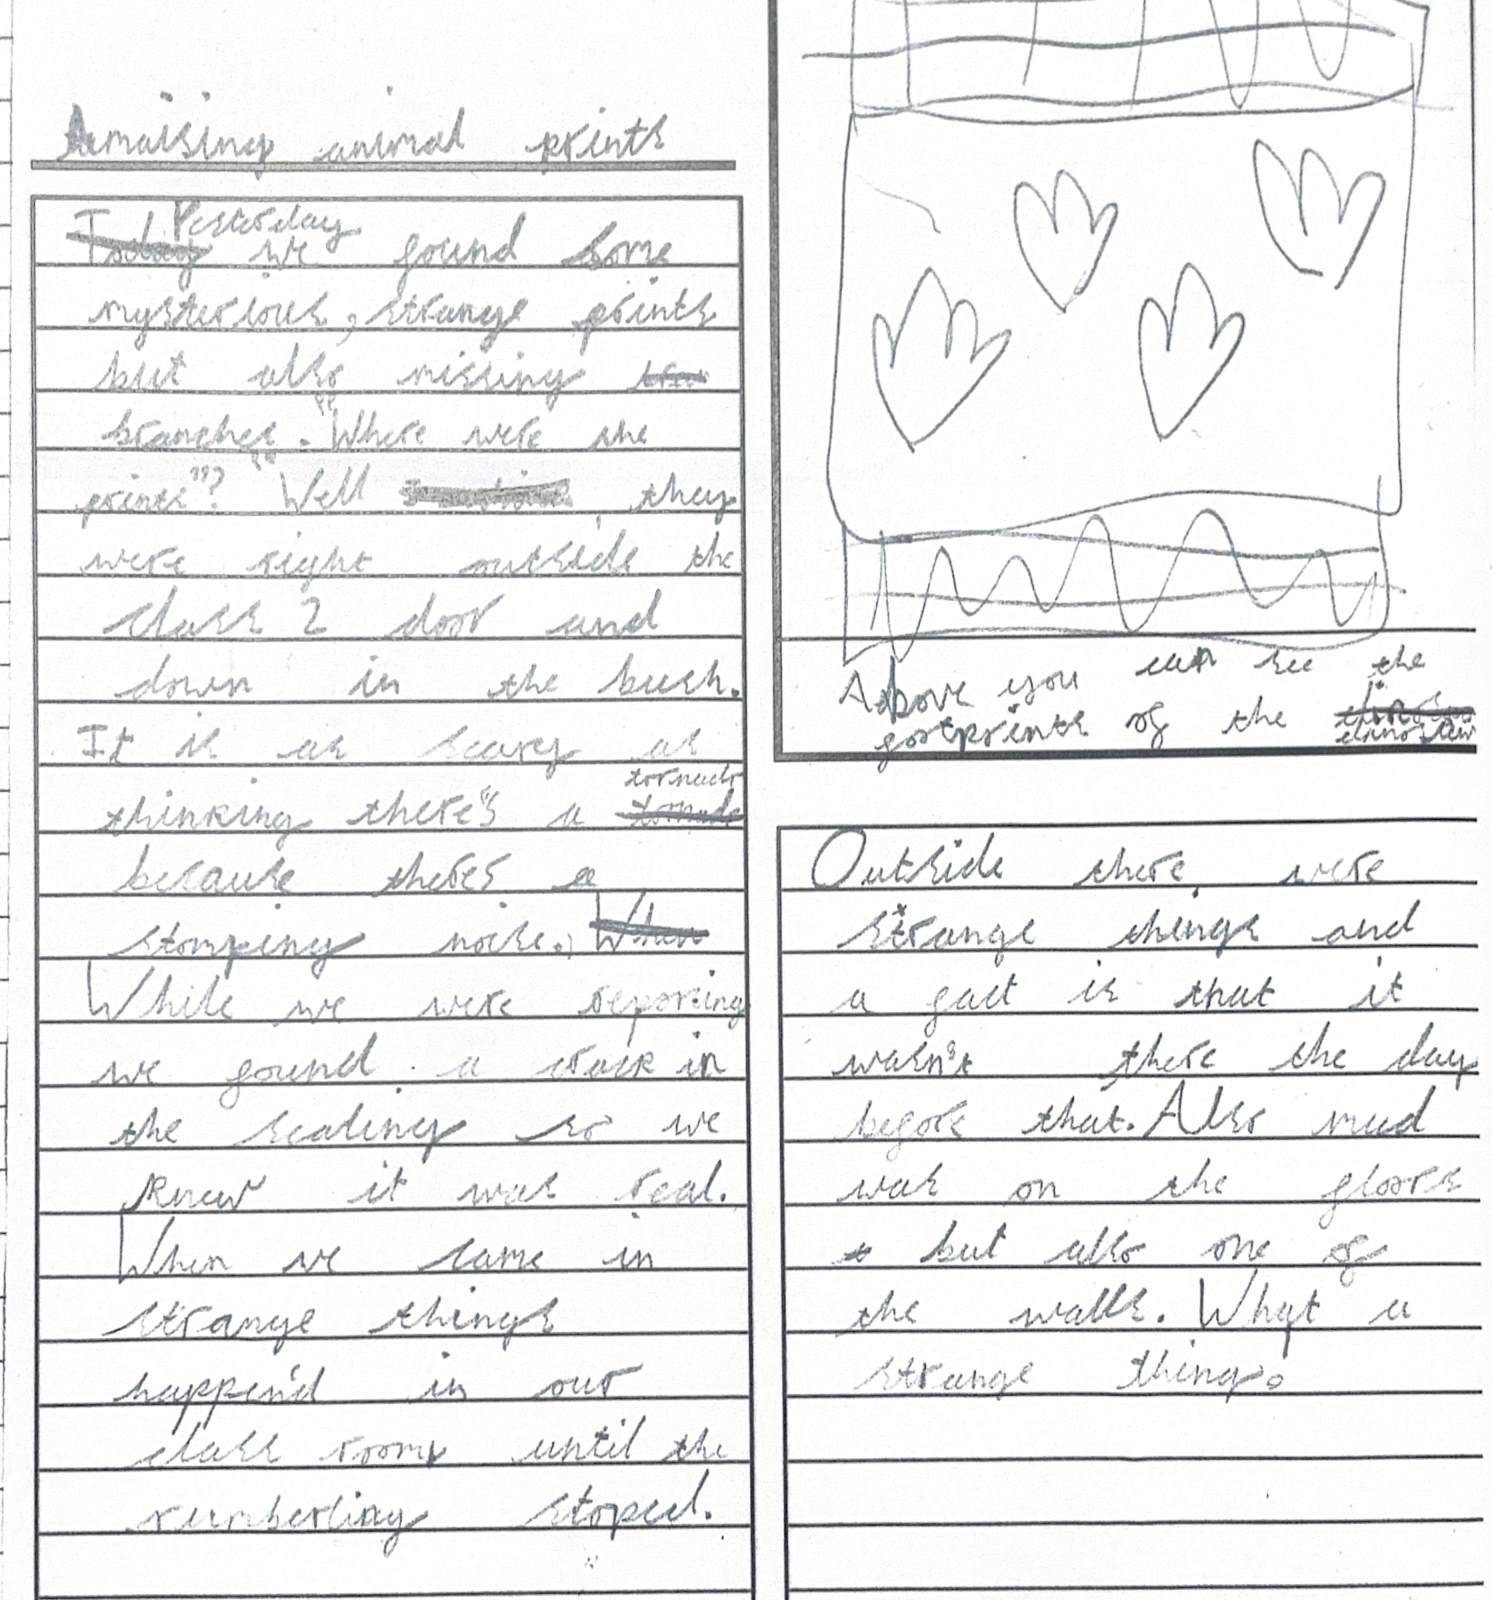 Amaising animal prints
Yesterday
Today we found some
mysterious, strange prints
but also missing
branches. "Where were the
prints"? "Well , they
were right outside the
class 2 door and
down in the bush.
It is as scary as
tornado
thinking there's a tornado
because there's a
stomping noise. When
While we were reporting
we found a crack in
the sealing so we
knew it was real.
When we came in
strange things
happen'd in our
class room until the
rumberling stoped.
Above you can see the
footprints of the
dinosaur
Outside there were
strange things and
a fact is that it
wasn't there the day
before that. Also mud
was on the floors
but also one of
the walls. What a
strange thing.